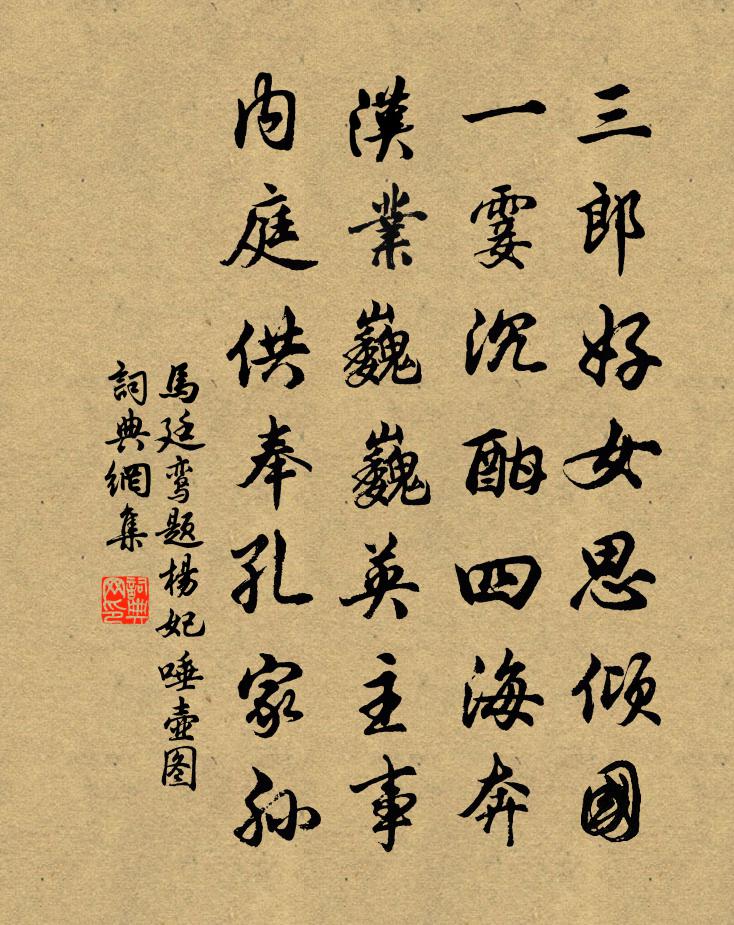 三郎好女思倾國
一霎沉酣四海奔
漢業巍巍英主事
内庭供奉孔家孙
馬廷鸾題楊妃唾壺图
詞典網集
詞典网印